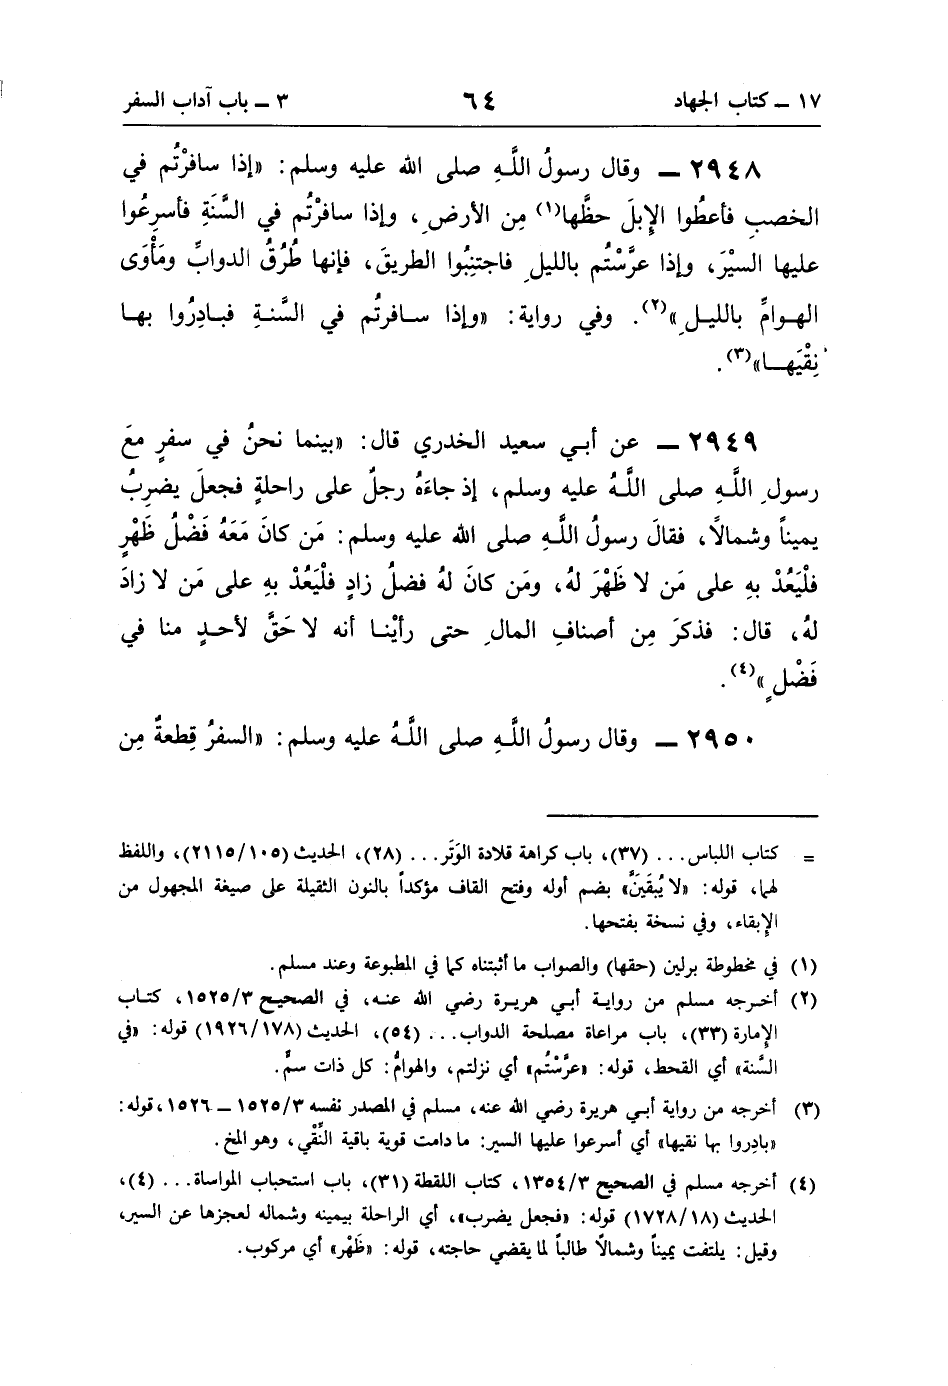 ١٧ ـ كتاب الجهاد ٦٤ ٣ ـ باب آداب السفر
٢٩٤٨ ـ وقال رسولُ اللَّـهِ صلى الله عليه وسلم: «إذا سافرْتُم في
الخصبِ فأعطُوا الإِبلَ حظَّها(١) مِن الأرضِ، وإذا سافرْتُم في السَّنَةِ فأسرِعُوا
عليها السيْرَ، وإذا عرَّسْتُم بالليلِ فاجتنِبُوا الطريقَ، فإنها طُرُقُ الدوابِّ ومَأْوَى
الهوامِّ بالليلِ»(٢). وفي رواية: «وإذا سافرتُم في السَّنةِ فبادِرُوا بها
نِقْيَها»(٣).
٢٩٤٩ ـ عن أبي سعيد الخدري قال: «بينما نحنُ في سفرٍ معَ
رسولِ اللَّهِ صلى اللَّهُ عليه وسلم، إذ جاءَهُ رجلٌ على راحلةٍ فجعلَ يضرِبُ
يميناً وشمالًا، فقالَ رسولُ اللَّهِ صلى الله عليه وسلم: مَن كانَ مَعَهُ فَضْلُ ظَهْرٍ
فلْيَعُدْ بهِ على مَن لا ظَهْرَ لهُ، ومَن كانَ لهُ فضلُ زادٍ فلْيَعُدْ بهِ على مَن لا زادَ
لهُ، قال: فذكرَ مِن أصنافِ المالِ حتى رأيْنا أنه لا حَقَّ لأحدٍ منا في
فَضْلٍ»(٤).
٢٩٥٠ ـ وقال رسولُ اللَّهِ صلى اللَّهُ عليه وسلم: «السفرُ قِطعةٌ مِن
= كتاب اللباس... (٣٧)، باب كراهة قلادة الوَتَر... (٢٨)، الحديث (٢١١٥/١٠٥)، واللفظ
لهما، قوله: «لا يُبقَيَنَّ» بضم أوله وفتح القاف مؤكداً بالنون الثقيلة على صيغة المجهول من
الإِبقاء، وفي نسخة بفتحها.
(١) في مخطوطة برلين (حقها) والصواب ما أثبتناه كما في المطبوعة وعند مسلم.
(٢) أخرجه مسلم من رواية أبي هريرة رضي الله عنه، في الصحيح ١٥٢٥/٣، كتاب
الإِمارة (٣٣)، باب مراعاة مصلحة الدواب... (٥٤)، الحديث (١٩٢٦/١٧٨) قوله: «في
السَّنة» أي القحط، قوله: «عرَّسْتُم» أي نزلتم، والهوامُّ: كل ذات سمٍّ.
(٣) أخرجه من رواية أبي هريرة رضي الله عنه، مسلم في المصدر نفسه ١٥٢٥/٣ ـ ١٥٢٦، قوله:
«بادِروا بها نقيها» أي أسرعوا عليها السير: ما دامت قوية باقية النِّقْي، وهو المخ.
(٤) أخرجه مسلم في الصحيح ١٣٥٤/٣، كتاب اللقطة (٣١)، باب استحباب المواساة... (٤)،
الحديث (١٧٢٨/١٨) قوله: «فجعل يضرب»، أي الراحلة بيمينه وشماله لعجزها عن السير،
وقيل: يلتفت يميناً وشمالًا طالباً لما يقضي حاجته، قوله: «ظَهْر» أي مركوب.